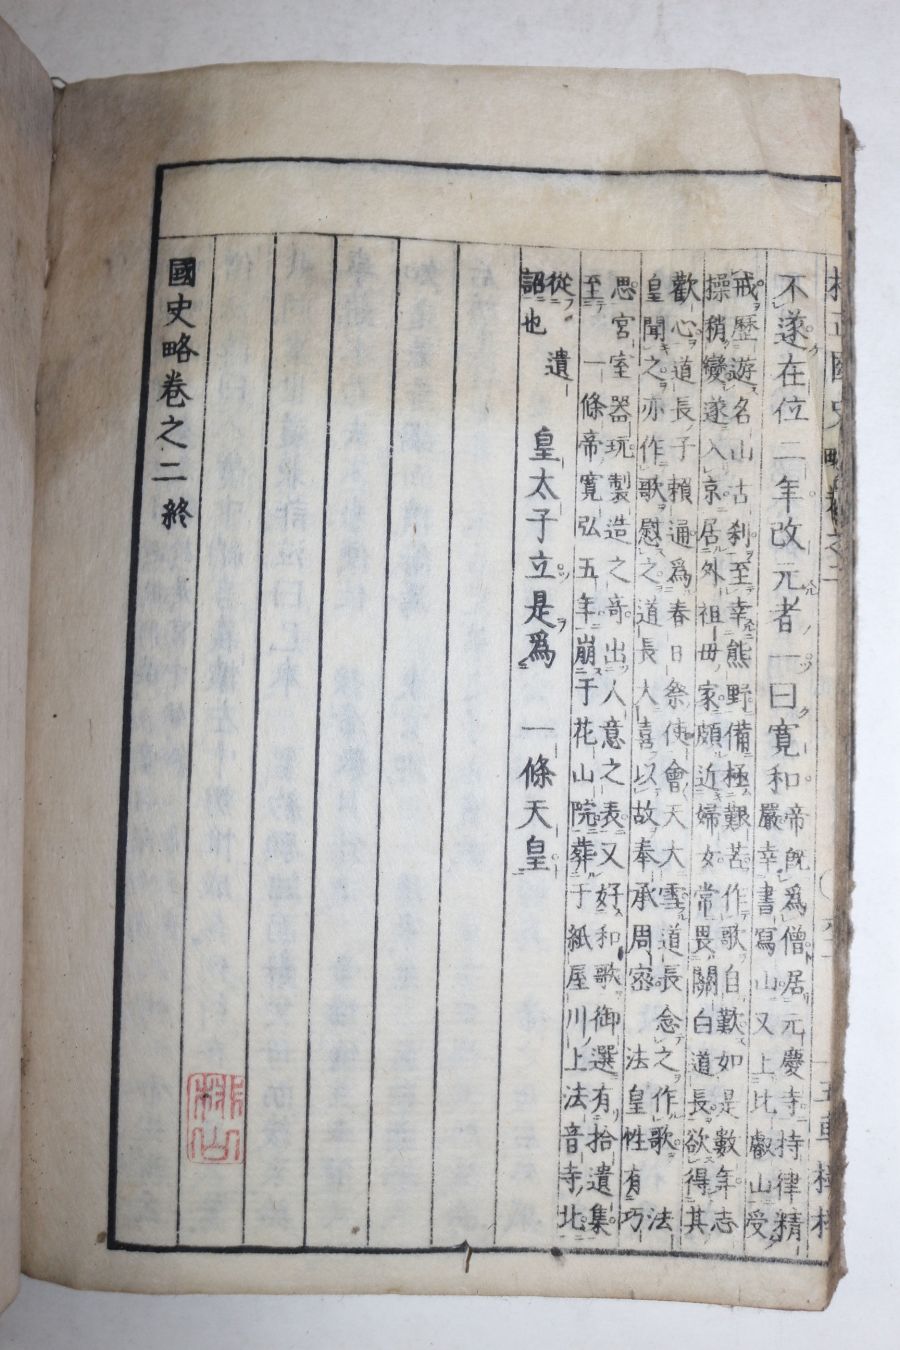 校正國史略卷之二 五車樓梓
不遂在位二年改元者一曰寬和
帝既爲僧居元慶寺持律精
嚴幸書寫山又上比叡山受
戒歷遊名山古刹至幸熊野備極艱苦作歌自歎如是數年志
操稍變遂入京居外祖毋家頗近婦女常畏關白道長欲得其
歡心道長子賴通爲春日祭使會天大雪道長念之作歌法
皇聞之亦作歌慰之道長大喜以故奉承周密 法皇性有巧
思宮室器玩製造之奇出人意之表又好和歌御選有拾遺集
至 一條帝寬弘五年崩于花山院葬于紙屋川上法音寺北
從 遺
詔也
皇太子立是爲 一條天皇
國史略卷之二終